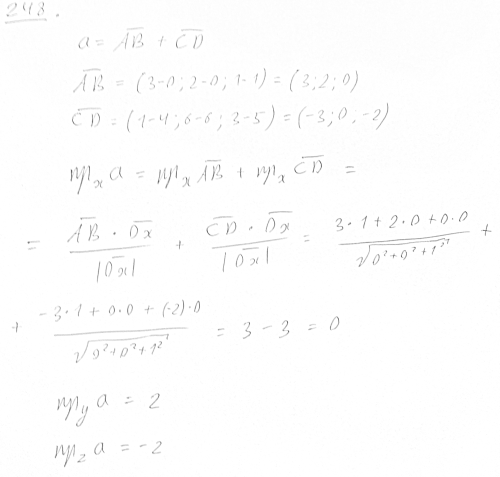 248.
a = AB + CD
AB = (3-0; 2-0; 1-1) = (3; 2; 0)
CD = (1-4; 6-6; 3-5) = (-3; 0; -2)
прₓ a = прₓ AB + прₓ CD =
= AB · Ox / |Ox| + CD · Ox / |Ox| = 3·1 + 2·0 + 0·0 / √(0² + 0² + 1²) +
+ -3·1 + 0·0 + (-2)·0 / √(0² + 0² + 1²) = 3 - 3 = 0
пр_y a = 2
пр_z a = -2